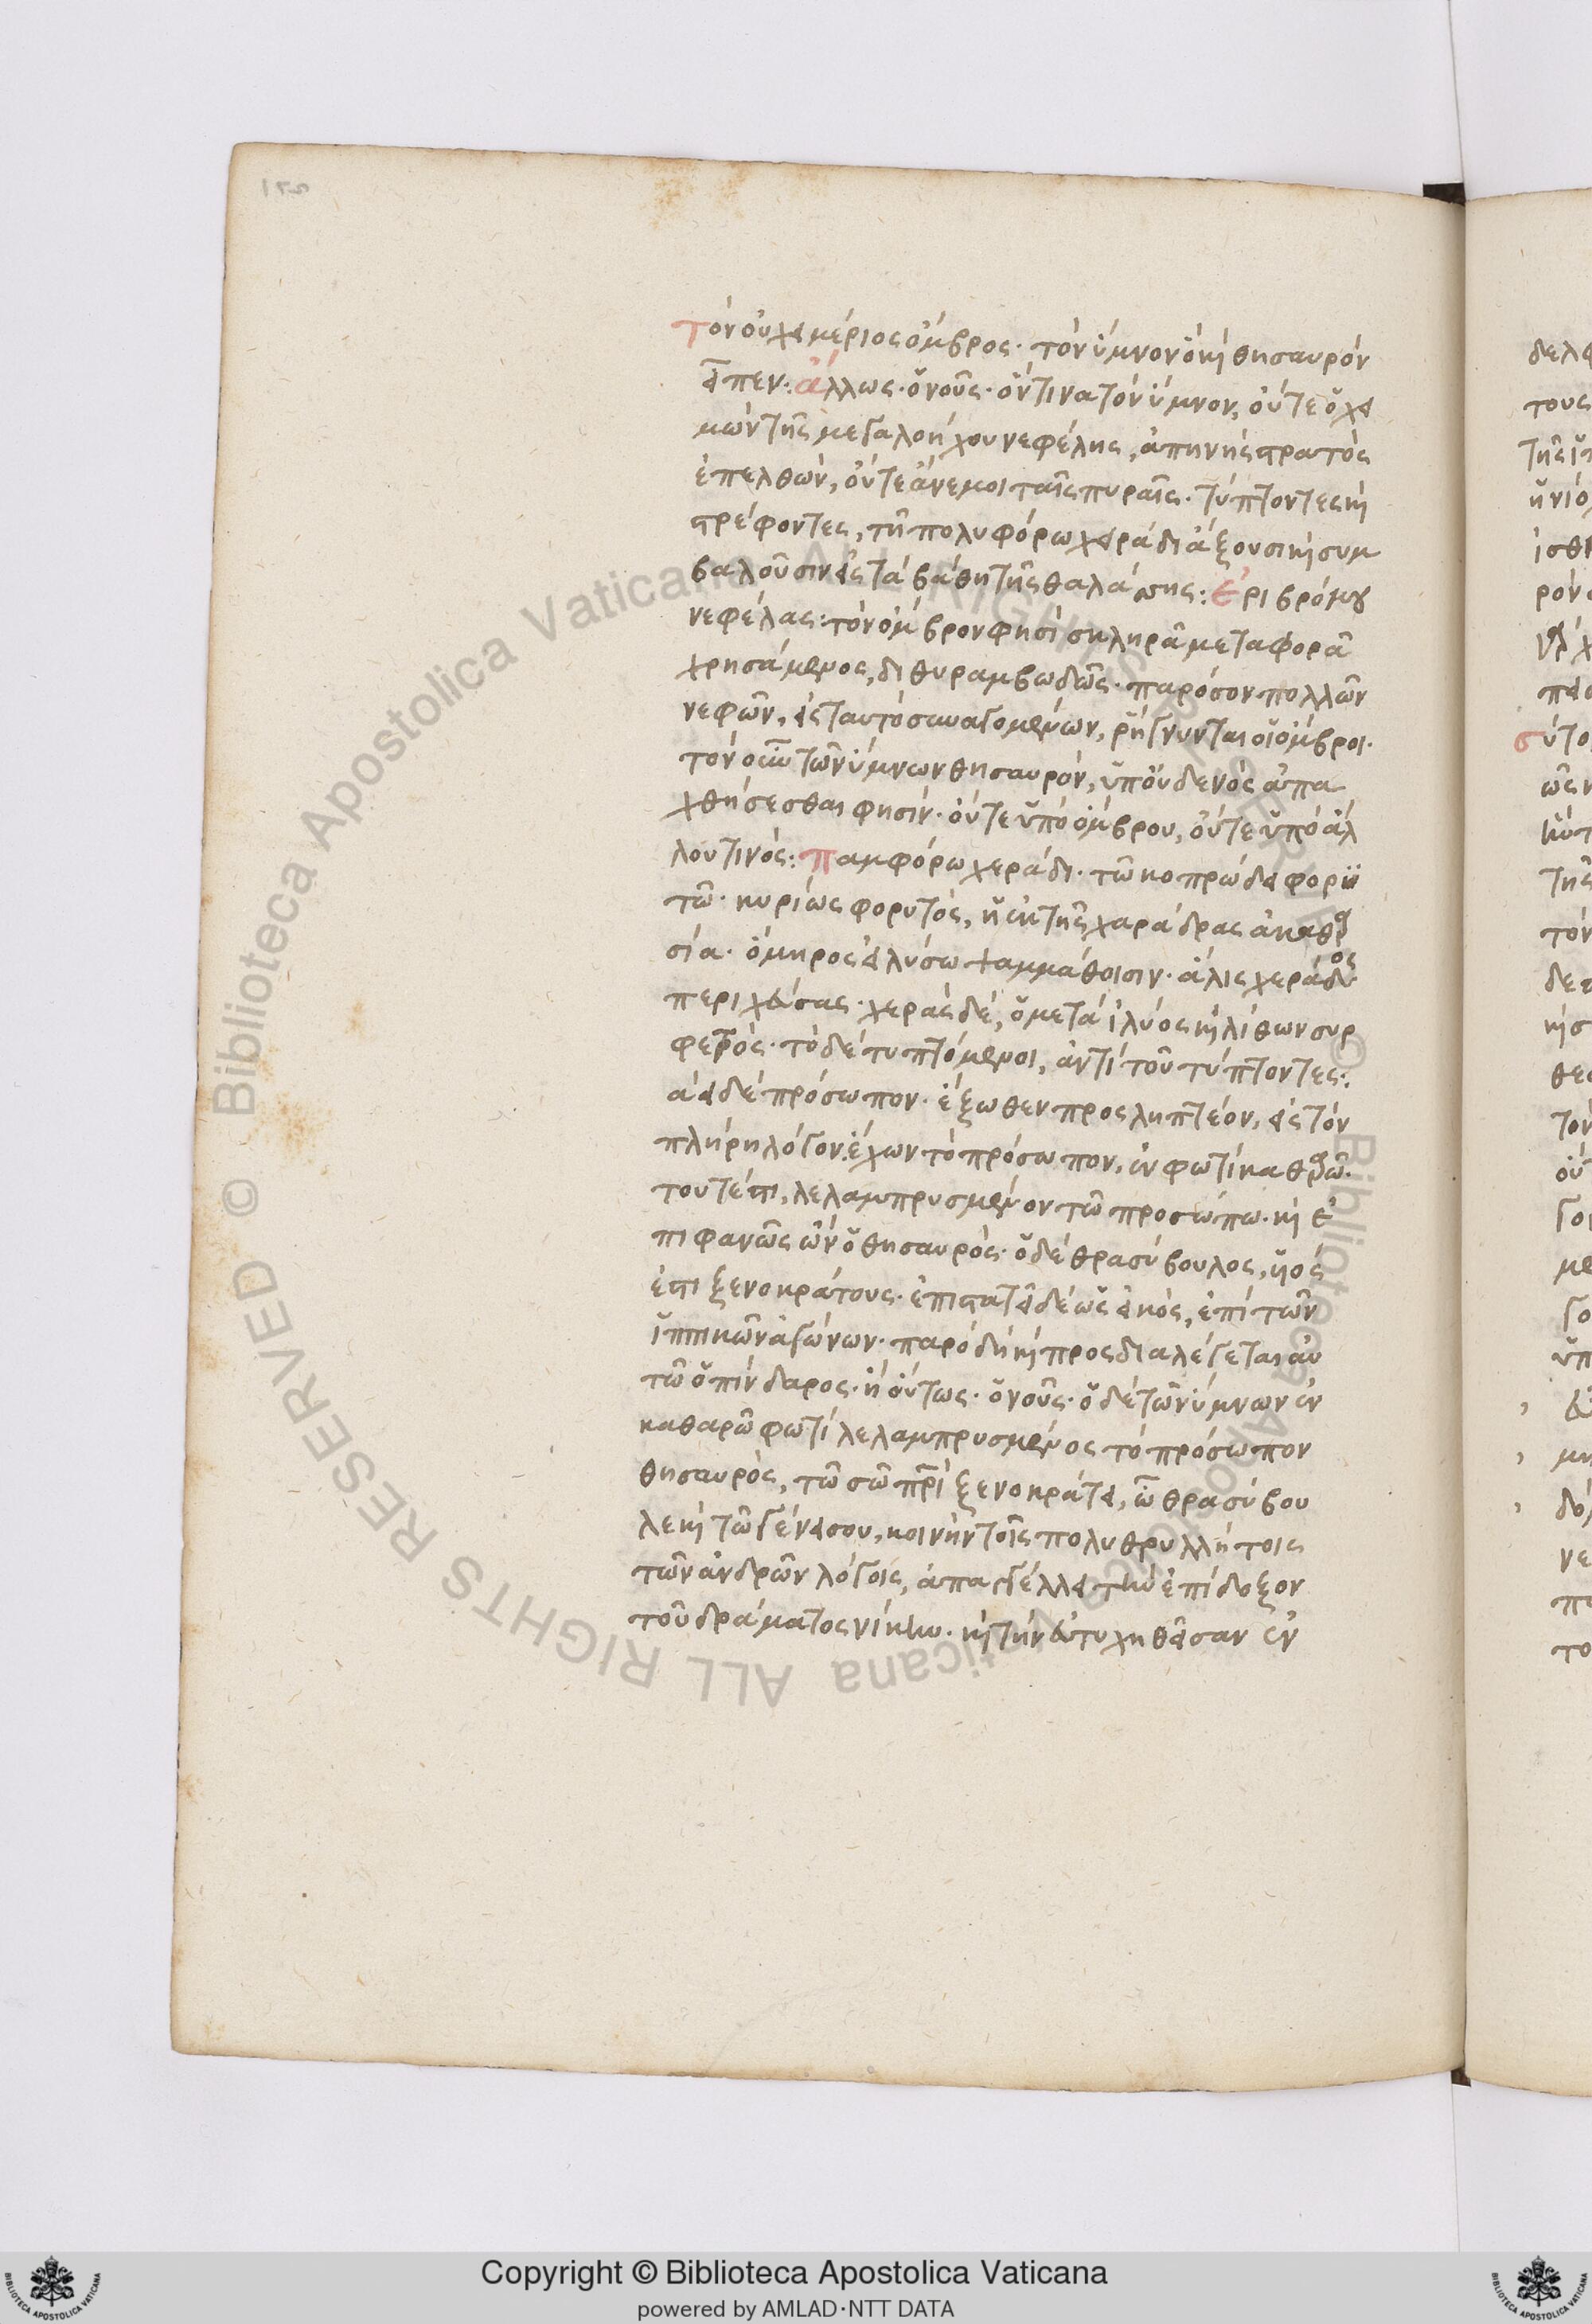 τὸν οὐ χειμέριος ὄμβρος· τὸν ὕμνον ὃν καὶ θησαυρὸν
εἶπεν: ἄλλως· ὁ νοῦς· ὅντινα τὸν ὕμνον, οὔτε ὁ χει
μὼν τῆς μεγαλοήχου νεφέλης, ἀπηνὴς στρατὸς
ἐπελθών, οὔτε ἄνεμοι ταῖς πυραῖς· τύπτοντες καὶ
στρέφοντες, τῇ πολυφόρῳ χεράδι ἄξουσι καὶ συμ
βαλοῦσιν εἰς τὰ βάθη τῆς θαλάσσης: ἐριβρόμου
νεφέλας: τὸν ὄμβρον φησὶ σκληρᾶ μεταφορᾶ
χρησάμενος, διθυραμβωδῶς· παρόσον πολλῶν
νεφῶν, εἰς ταυτὸ συναγομένων, ῥήγνυνται οἱ ὄμβροι·
τὸν οὖν τῶν ὕμνων θησαυρόν, ὑπ' οὐδενὸς ἀπα
χθήσεσθαι φησίν· οὔτε ὑπὸ ὄμβρου, οὔτε ὑπὸ ἄλ
λου τινός: παμφόρω χεράδι· τῶ κοπρώδει φορυ
τῶ· κυρίως φορυτὸς, ἡ ἐκ τῆς χαράδρας ἀκαθαρ
σία· ὅμηρος εἰλύσω ψαμμάθοισιν· ἅλις χεράδος
περιχεύσας· χερὰς δέ, ὁ μετὰ ἰλύος καὶ λίθων συρ
φετός· τὸ δὲ τυπτόμενοι, ἀντὶ τοῦ τύπτοντες:
ἀεὶ δὲ πρόσωπον· ἔξωθεν προσληπτέον, εἰς τὸν
πλήρη λόγον· ἔχων τὸ πρόσωπον, ἐν φωτὶ καθαρῶ·
τουτέστι, λελαμπρυσμένον τῶ προσώπω· καὶ ἐ
πιφανῶς ὢν ὁ θησαυρός· ὁ δὲ θρασύβουλος, υἱός
ἐστι ξενοκράτους· ἐπιστατεῖ δὲ ὡς εἰκός, ἐπὶ τῶν
ἱππικῶν ἀγώνων· παρὸ δὴ καὶ προσδιαλέγεται αὐ
τῶ ὁ πίνδαρος· ἢ οὕτως· ὁ νοῦς· ὁ δὲ τῶν ὕμνων ἐν
καθαρῶ φωτὶ λελαμπρυσμένος τὸ πρόσωπον
θησαυρός, τῶ σῶ πρὶ ξενοκράτει, ὦ θρασύβου
λε καὶ τῶ γένει σου, κοινὴν τοῖς πολυθρυλλήτοις
τῶν ἀνδρῶν λόγοις, ἀπαγγέλλει τὴν ἐπίδοξον
τοῦ δράματος νίκην· καὶ τὴν εὐτυχηθεῖσαν ἐν
Copyright © Biblioteca Apostolica Vaticana
powered by AMLAD·NTT DATA